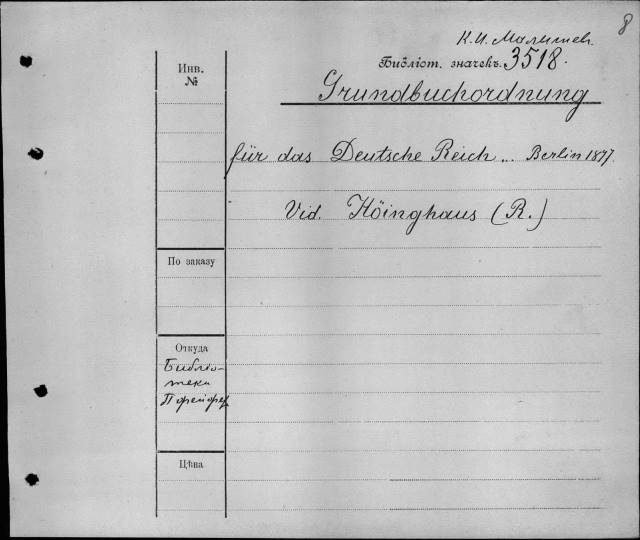 8
К. И. Малышев.
Библіот. значекъ. 3518.
Инв.
№
Grundbuchordnung
für das Deutsche Reich... Berlin 1897.
Vid. Höinghaus (R.)
По заказу
Откуда
Библіо-
теки
Пфейфер
Цѣна